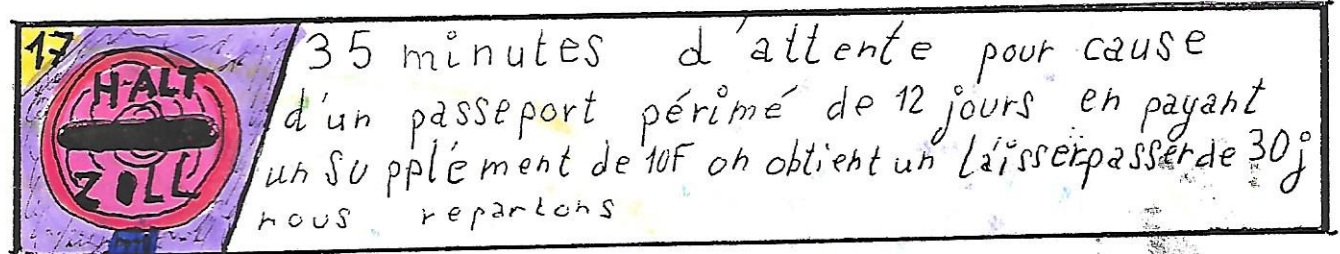 17
HALT
ZOLL
35 minutes d'attente pour cause
d'un passeport périmé de 12 jours en payant
un supplément de 10F on obtient un laisserpasser de 30j
nous repartons